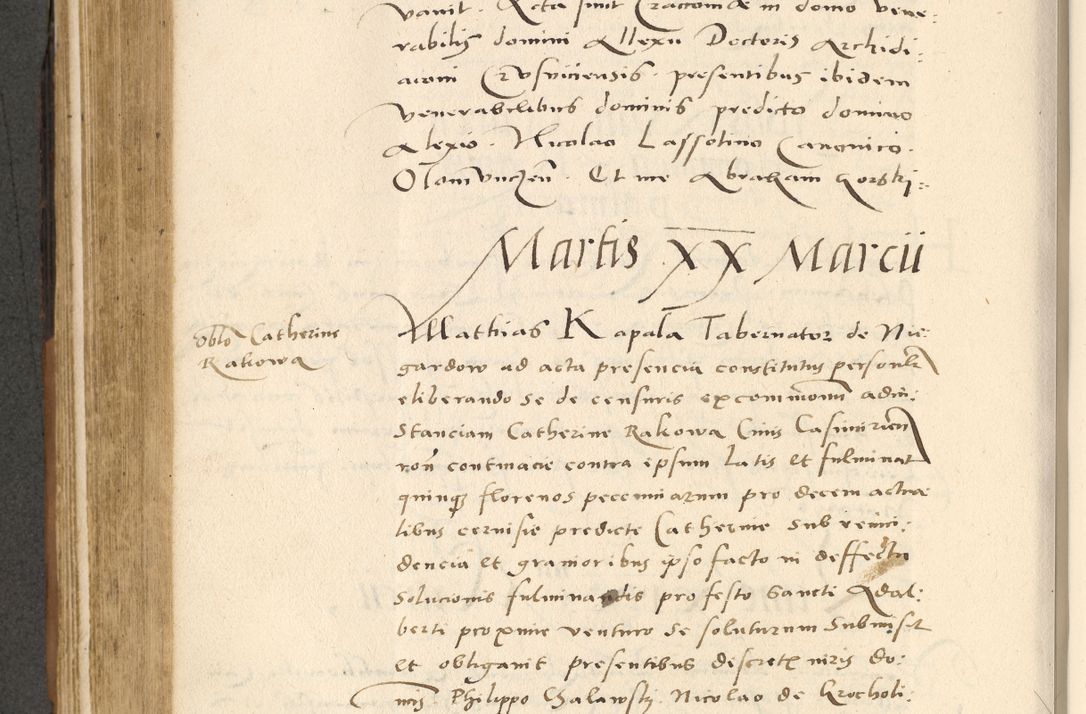 vavit. Acta sunt Cracoviae in domo vene:
rabilis domini Allexii Doctoris Archidi:
aconi Crusviciensis. presentibus ibidem
venerabilibus dominis predicto domino
Alexio. Nicolao Lassotino Canonico.
Olomunczen. Et me Abraham Gorski:
Martis XX Marcii
Oblo Catherine
Rakowa
Mathias Kapala Tabernator de Nie:
gardow ad acta presencia constitutus personlr
eliberando se de censuris excommonum ad in:
stanciam Catherine Rakowa Civis Casimirien
ron contmacie contra ipsum latis et fulminat
quinq florenos pecuniarum pro decem actua
libus cervisie predicte Catherine sub reinci:
dencia et gravioribus ipso facto in deffectu
solucionis fulminandis pro festo sancti Adal:
berti proxime venturo se soluturum submisit
et obligavit presentibus discretx viris do:
nis Philippo Chalawsky. Nicolao de Grocholi: